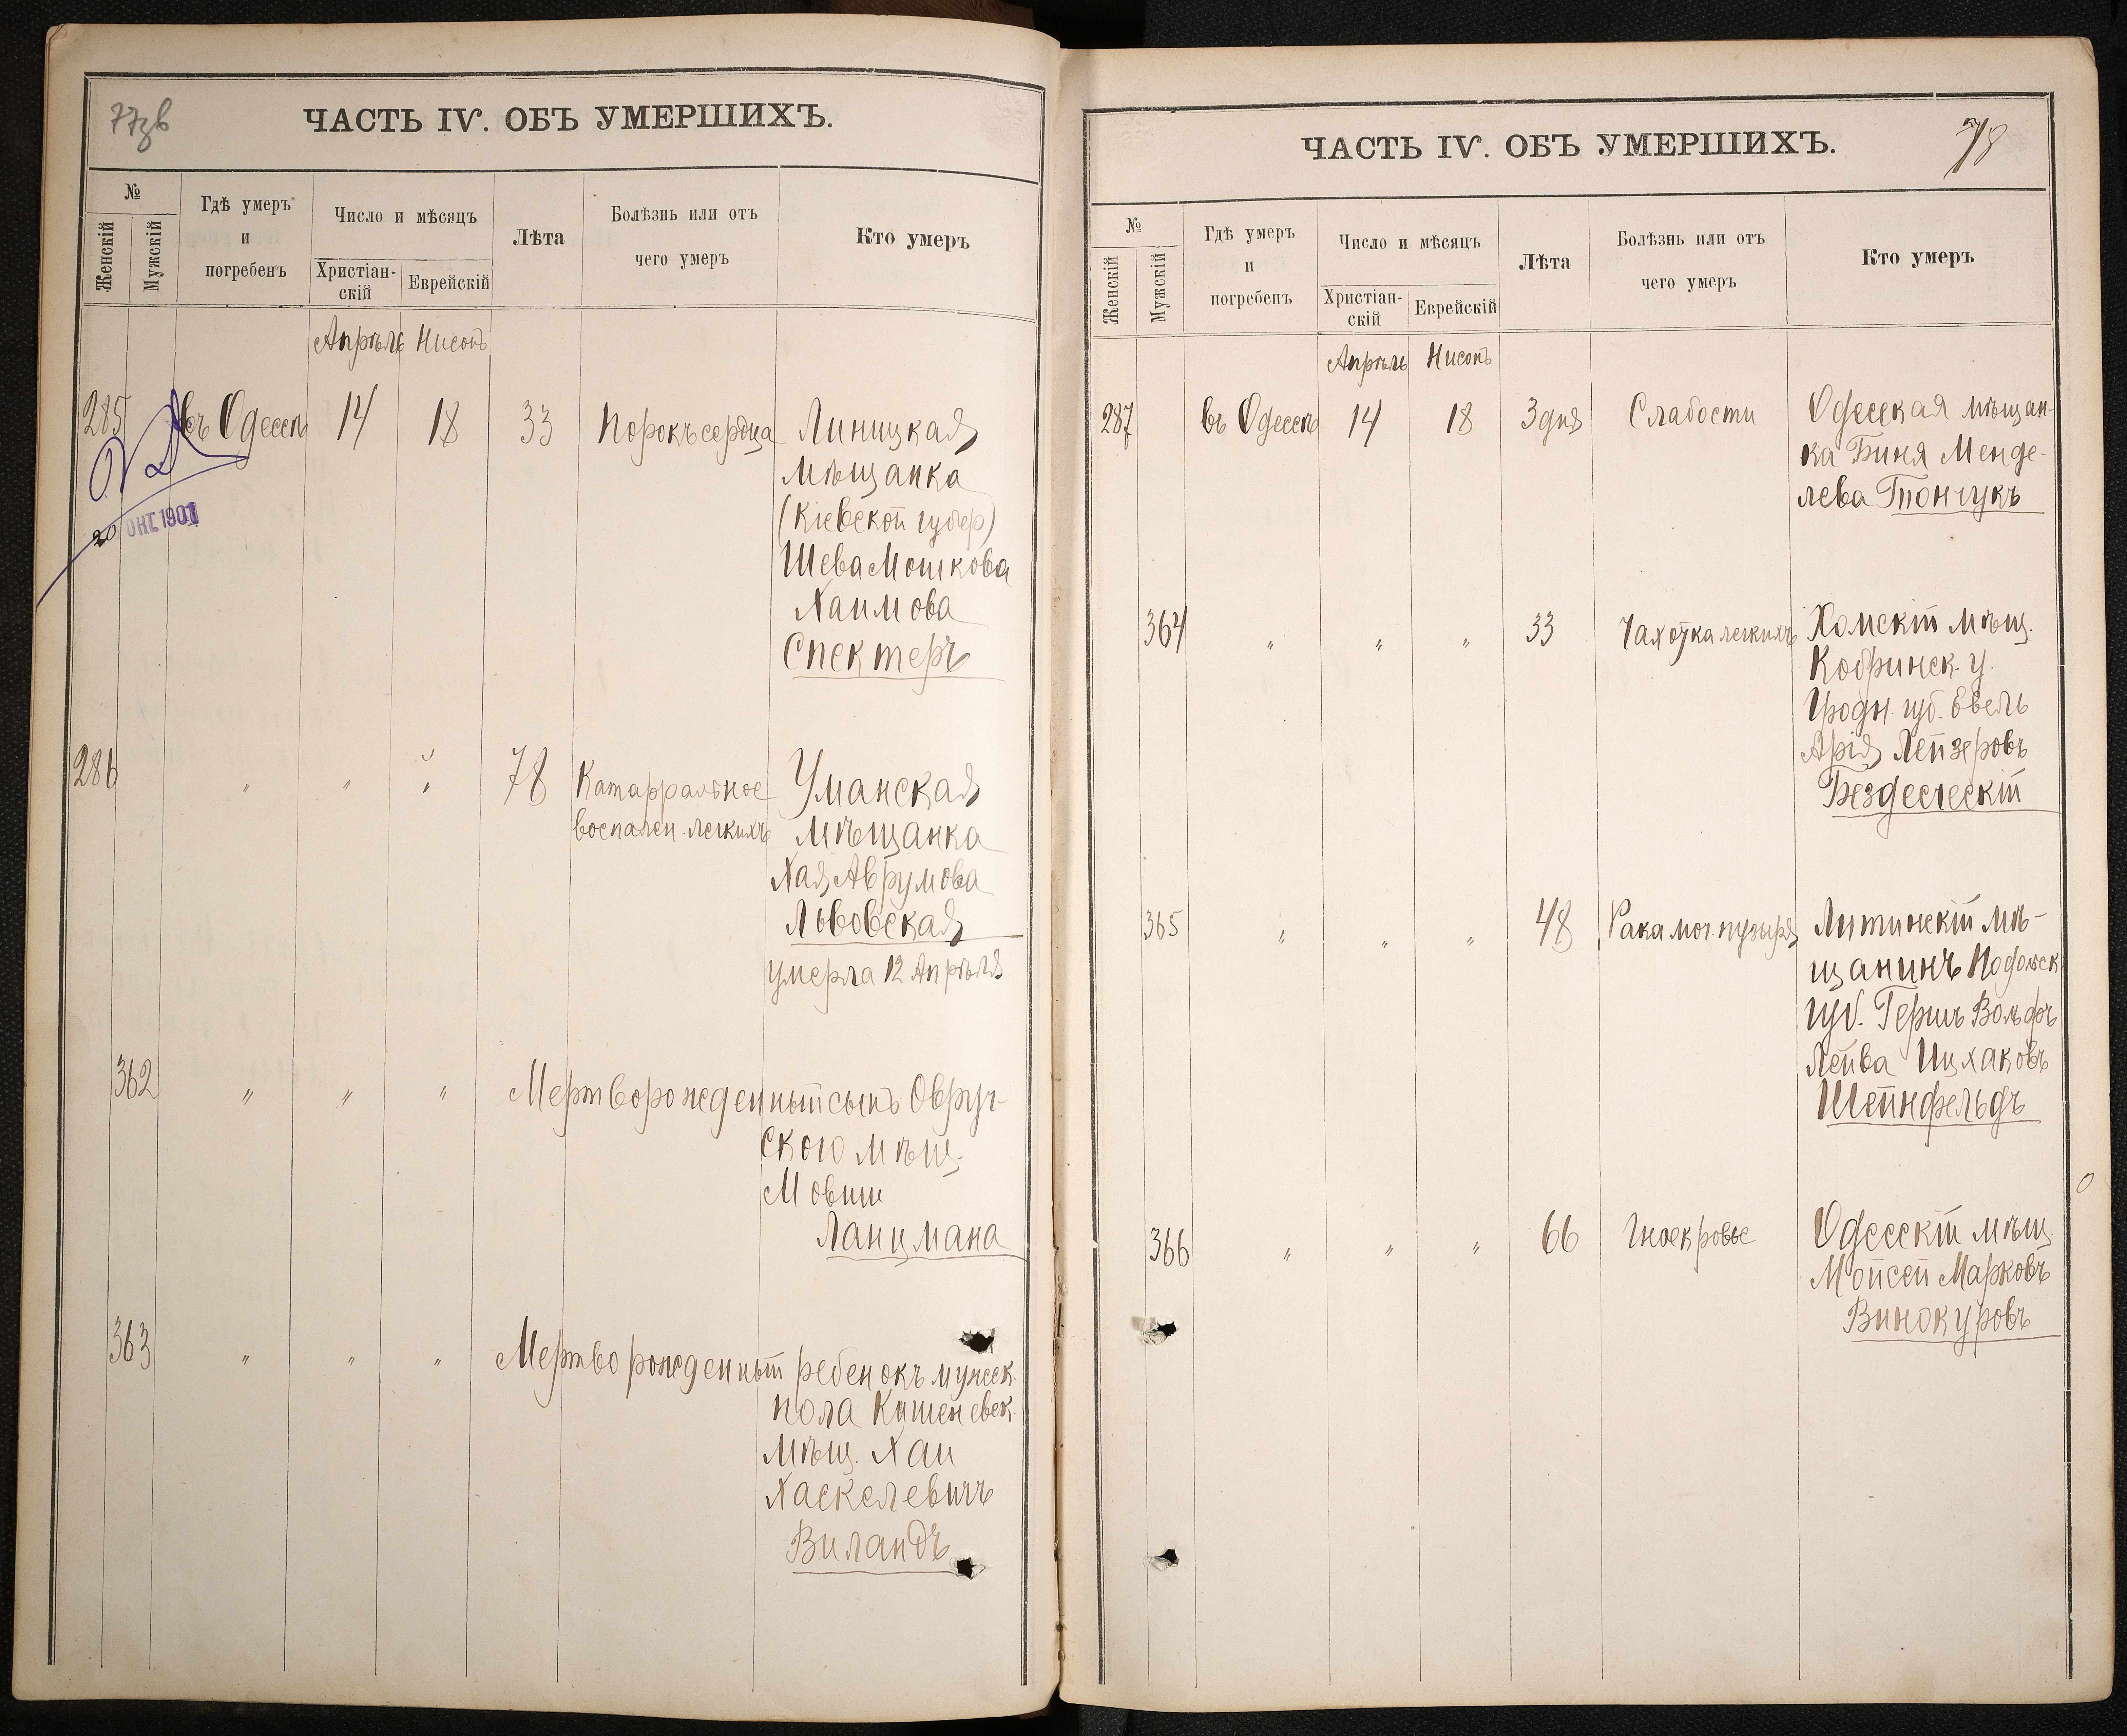 77зв
ЧАСТЬ IV. ОБЪ УМЕРШИХЪ.
№
Женскій
Мужскій
Гдѣ умеръ
и
погребенъ
Число и мѣсяцъ
Христіан-
скій
Еврейскій
Лѣта
Болѣзнь или отъ
чего умеръ
Кто умеръ
Апрѣль Нисонъ
285 въ Одессѣ 14 18 33 Порокъ сердца Линицкая
мѣщанка
(Кіевской губер)
Шева Мошкова
Хаимова
Спекторъ
20 ОКТ. 1901
286 " " " 78 Катарральное Уманская
воспален. легкихъ мѣщанка
Хая Аврумова
Львовская
умерла 12 Апрѣля
362 " " " Мертворожденный сынъ Овруч-
ского мѣщ.
Мовши
Ланцмана
363 " " " Мертворожденный ребенокъ мужск.
пола Кишеневск.
мѣщ. Хаи
Хаскелевичъ
Виландъ
78
ЧАСТЬ IV. ОБЪ УМЕРШИХЪ.
№
Женскій
Мужскій
Гдѣ умеръ
и
погребенъ
Число и мѣсяцъ
Христіан-
скій
Еврейскій
Лѣта
Болѣзнь или отъ
чего умеръ
Кто умеръ
Апрѣль Нисонъ
287 въ Одессѣ 14 18 3 дня Слабости Одесская мѣщан-
ка Биня Менде-
лева Тончукъ
364 " " " 33 Чахотка легкихъ Хомскій мѣщ.
Кобринск. у.
Гродн. губ. Евель
Арія Лейзеровъ
Бездесческій
365 " " " 48 Рака моч. пузыря Литинскій мѣ-
щанинъ Подольск
губ. Гершъ Вольфъ
Лейва Ицхаковъ
Шейнфельдъ
366 " " " 66 Гноекровье Одесскій мѣщ.
Мойсей Марковъ
Винокуровъ